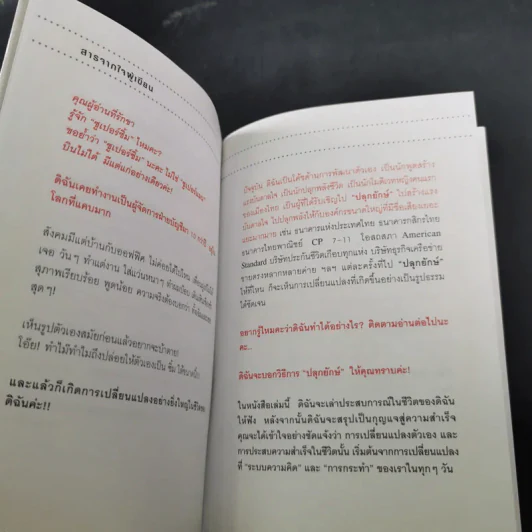 สารจากใจผู้เขียน
คุณผู้อ่านที่รักขา
รู้จัก "ซูเปอร์ซึม" ไหมคะ?
ขอย้ำว่า "ซูเปอร์ซึม" นะคะ ไม่ใช่ "ซูเปอร์แมน"
บินไม่ได้ มีแต่แก่อย่างเดียวค่ะ!
ดิฉันเคยทำงานเป็นผู้จัดการฝ่ายบัญชีมา
โลกที่แคบมาก
สังคมมีแต่บ้านกับออฟฟิศ ไม่ค่อยได้ไปไหน
เจอ วันๆ ทำแต่งาน ใส่แว่นหนาๆ
สุภาพเรียบร้อย พูดน้อย ความจริงต้องบอกว่า
สุดๆ!
เห็นรูปตัวเองสมัยก่อนแล้วอยากจะบ้าตาย!
โอ๊ย! ทำไมทำไมถึงปล่อยให้ตัวเองเป็น ซึม ได้ขนาดนี้
และแล้วก็เกิดการเปลี่ยนแปลงอย่างยิ่งใหญ่ในชีวิตของ
ดิฉันค่ะ!!
ปัจจุบัน ดิฉันเป็นโค้ชด้านการพัฒนาตัวเอง เป็นนักพูดสร้าง
แรงบันดาลใจ เป็นนักปลุกพลังชีวิต เป็นนักโมติเวทหญิงคนแรก
ของเมืองไทย เป็นผู้ที่ได้รับเชิญไป "ปลุกยักษ์" ไปสร้างแรง
บันดาลใจ ไปปลุกพลังให้กับองค์กรขนาดใหญ่ที่มีชื่อเสียงและ
มากมาย เช่น ธนาคารแห่งประเทศไทย ธนาคารกสิกรไทย
ธนาคารไทยพาณิชย์ CP 7-11 โอสถสภา American
Standard บริษัทประกันชีวิตเกือบทุกแห่ง บริษัทธุรกิจเครือข่าย
ขายตรงหลากหลายค่าย ฯลฯ แต่ละครั้งที่ไป "ปลุกยักษ์"
ให้ที่ไหน ก็จะเห็นการเปลี่ยนแปลงที่เกิดขึ้นอย่างเป็นรูปธรรม
ได้ชัดเจน
อยากรู้ไหมคะว่าดิฉันทำได้อย่างไร? ติดตามอ่านต่อไปนะ
คะ..
ดิฉันจะบอกวิธีการ "ปลุกยักษ์" ให้คุณทราบค่ะ!
ในหนังสือเล่มนี้ ดิฉันจะเล่าประสบการณ์ในชีวิตของดิฉัน
ให้ฟัง หลังจากนั้นดิฉันจะสรุปเป็นกุญแจสู่ความสำเร็จ
คุณจะได้เข้าใจอย่างชัดแจ้งว่า การเปลี่ยนแปลงตัวเอง และ
การประสบความสำเร็จในชีวิตนั้น เริ่มต้นจากการเปลี่ยนแปลง
ที่ "ระบบความคิด" และ "การกระทำ" ของเราในทุกๆ วัน